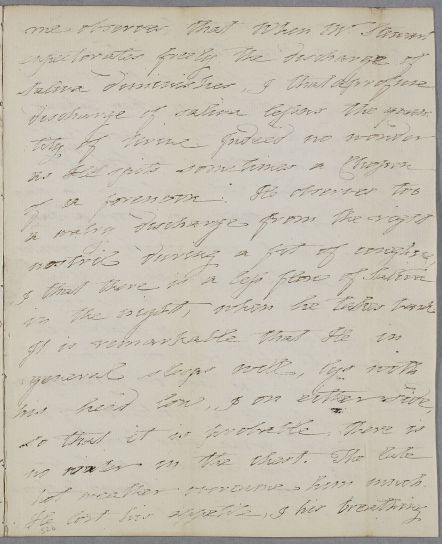 me observes, that when Mr
expectorates freely the discharge of
saliva diminishes, & that a profuse
discharge of saliva lessens the quan-
tity of Urine. Indeed no wonder
as He spits sometimes a Chopin
of a forenoon. He observes too
a watry discharge from the right
nostril during a fit of coughing,
& that there is a less flow of Saliva
in the night, when he takes
It is remarkable that He in
general sleeps well, lys with
his head low, & on either side,
so that it is probable, there is
no water in the chest. The late
hot weather overcame him much.
He lost his appetite, & his breathing